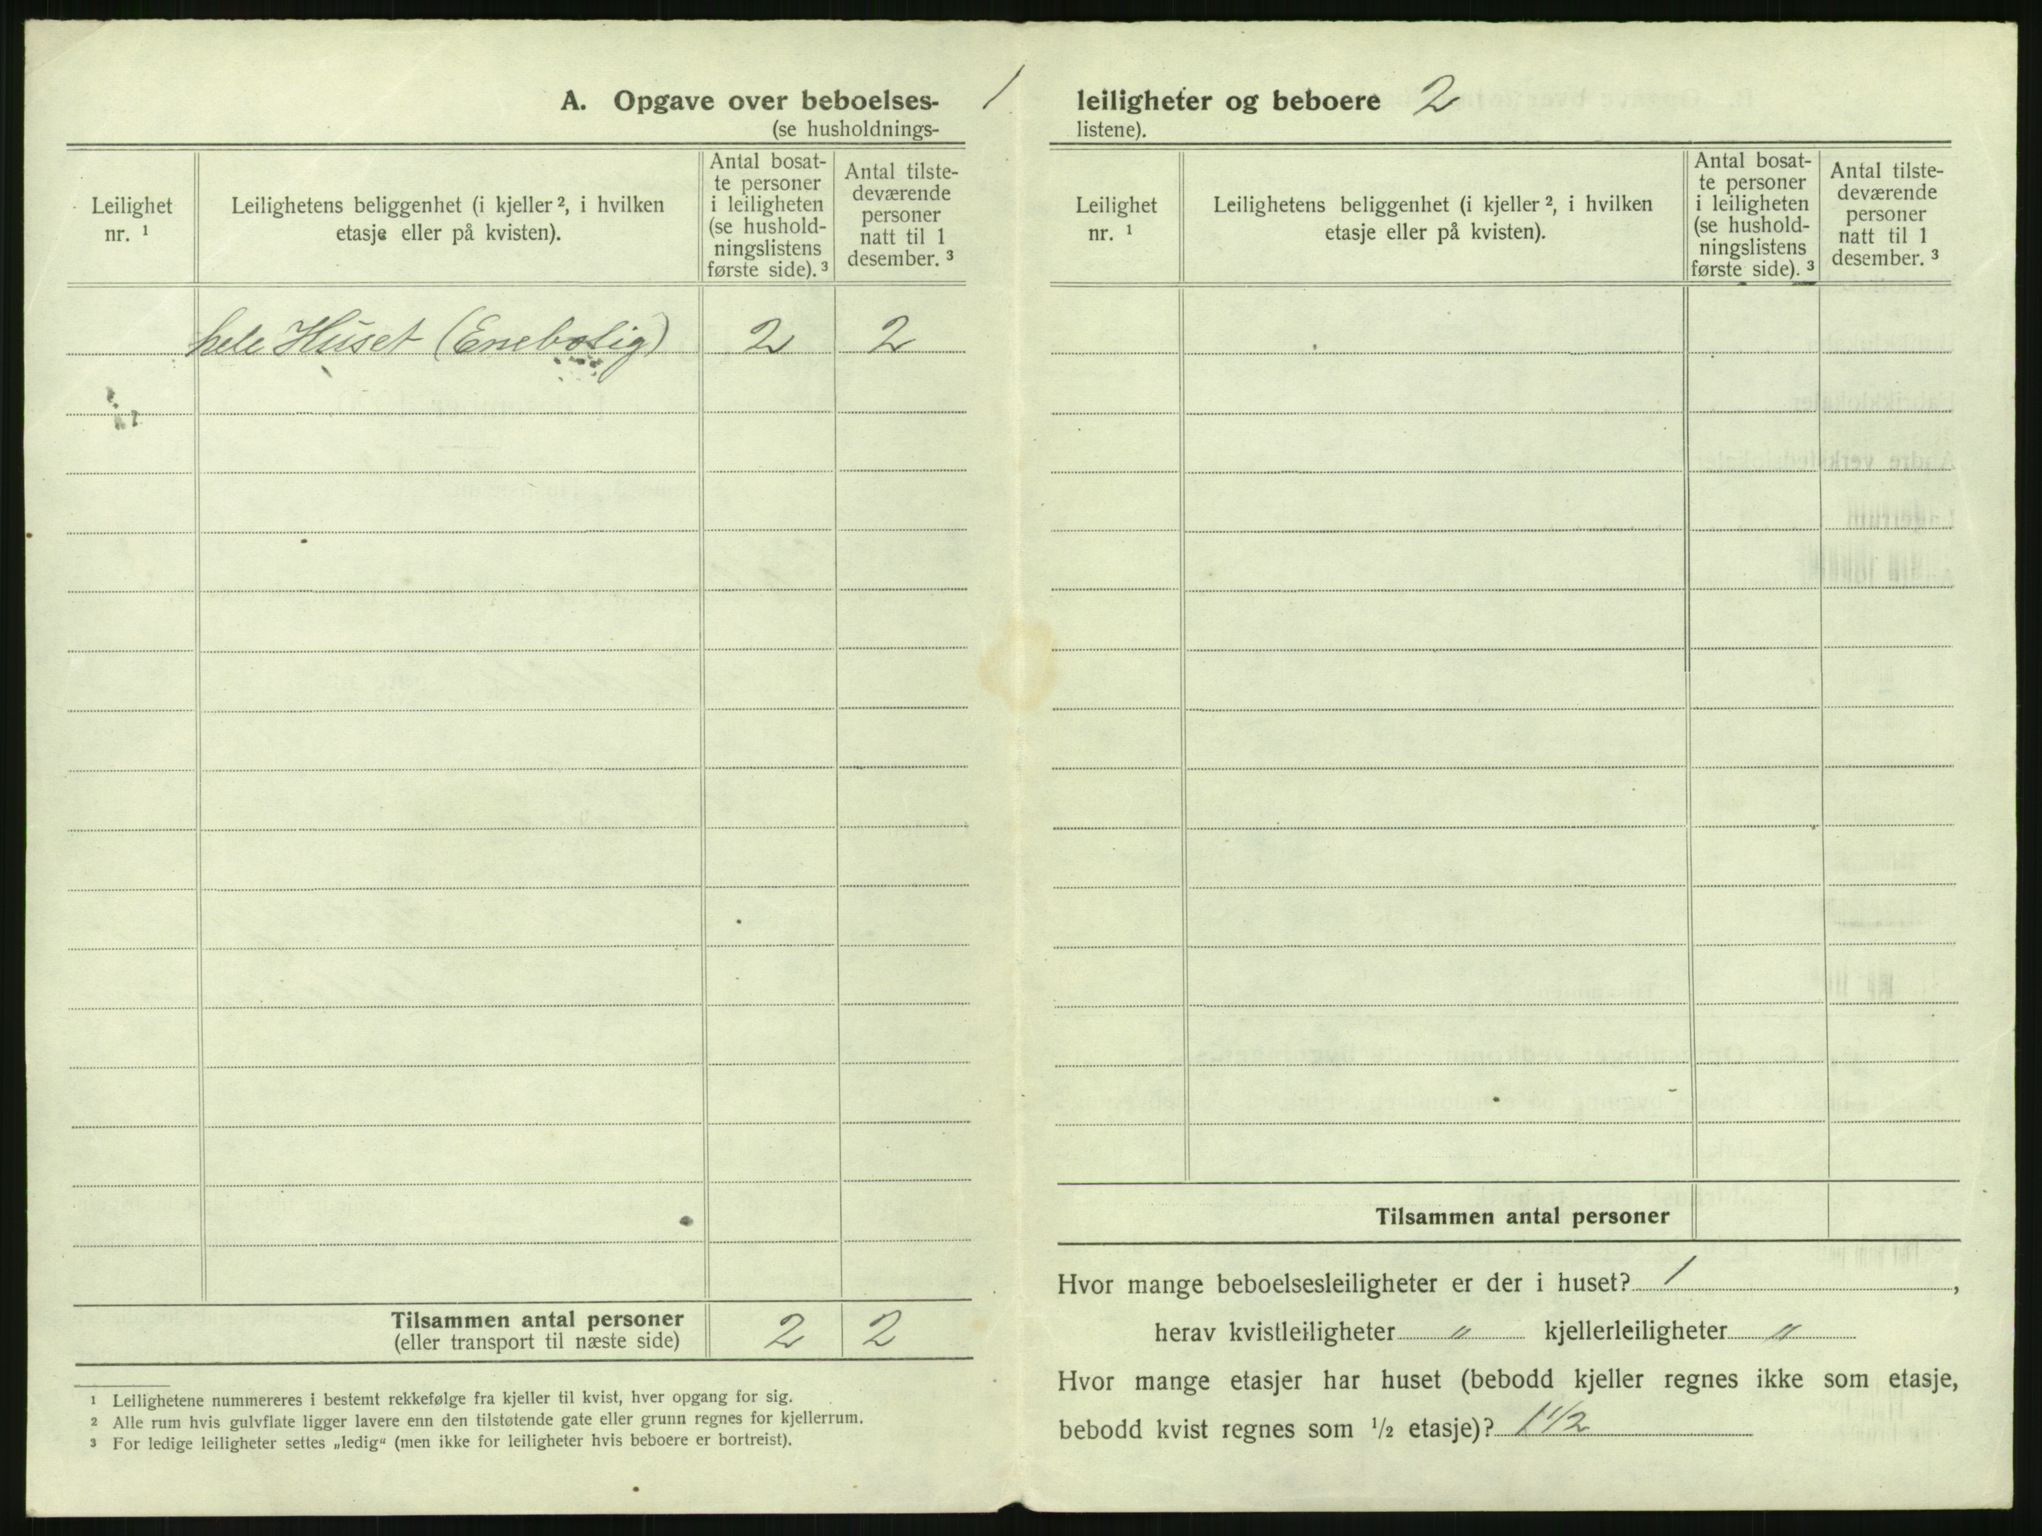 A. Opgave over beboelses- 1 leiligheter og beboere 2
(se husholdnings- listene).
Leilighet nr. ¹
Leilighetens beliggenhet (i kjeller ², i hvilken etasje eller på kvisten).
Antal bosat-
te personer
i leiligheten
(se hushold-
ningslistens
første side). ³
Antal tilste-
deværende
personer
natt til 1
desember. ³
hele Huset (Enebolig) 2 2
Tilsammen antal personer
(eller transport til næste side) 2 2
¹ Leilighetene nummereres i bestemt rekkefølge fra kjeller til kvist, hver opgang for sig.
² Alle rum hvis gulvflate ligger lavere enn den tilstøtende gate eller grunn regnes for kjellerrum.
³ For ledige leiligheter settes „ledig“ (men ikke for leiligheter hvis beboere er bortreist).
Leilighet nr. ¹
Leilighetens beliggenhet (i kjeller ², i hvilken etasje eller på kvisten).
Antal bosat-
te personer
i leiligheten
(se hushold-
ningslistens
første side). ³
Antal tilste-
deværende
personer
natt til 1
desember. ³
Tilsammen antal personer
Hvor mange beboelsesleiligheter er der i huset? 1,
herav kvistleiligheter " kjellerleiligheter "
Hvor mange etasjer har huset (bebodd kjeller regnes ikke som etasje,
bebodd kvist regnes som ½ etasje)? 1 1/2